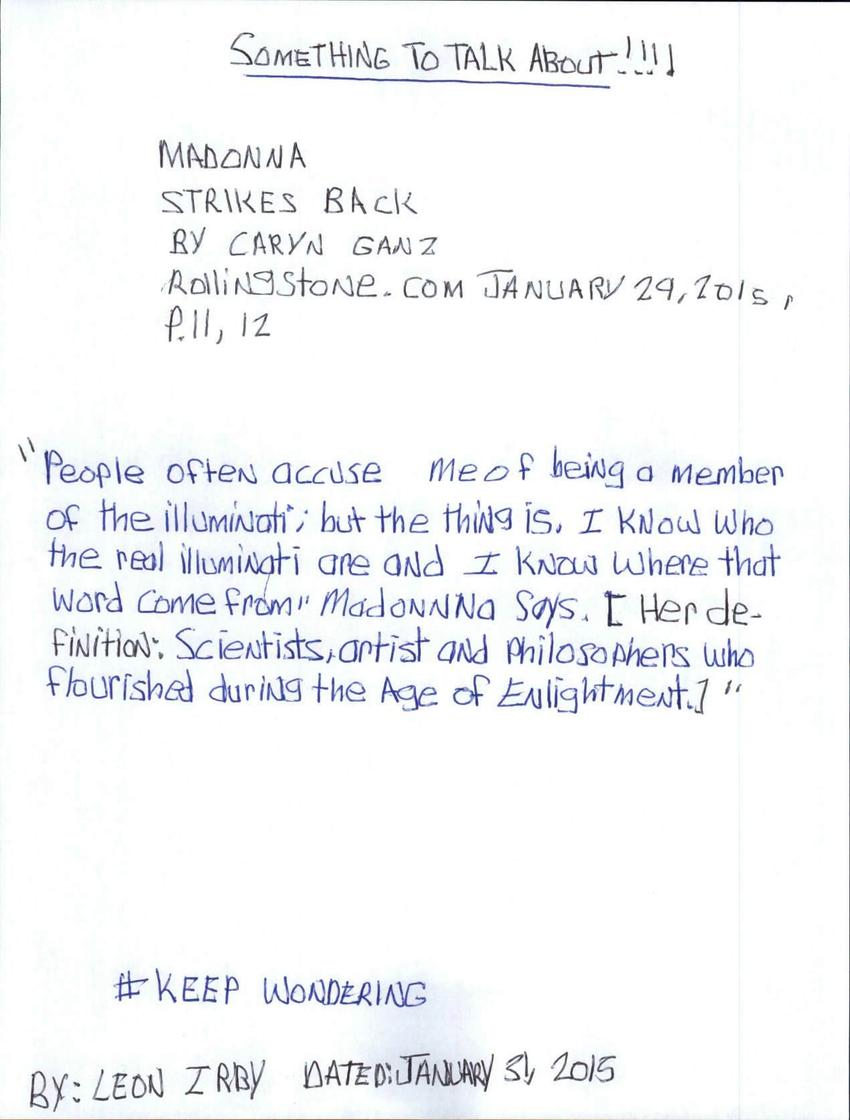 SOMETHING TO TALK ABOUT!!!!
MADONNA
STRIKES BACK
BY CARYN GANZ
RollingStone.com JANUARY 29, 2015,
P.11, 12
"People often accuse me of being a member
of the illuminati; but the thing is, I KNOW WHO
the real illuminati are and I KNOW Where that
word come from" MadoNNNa Says. [Her de-
finition: Scientists, artist and Philosophers who
flourished during the Age of Enlightment.]"
#KEEP WONDERING
BY: LEON IRBY DATED: JANUARY 31, 2015